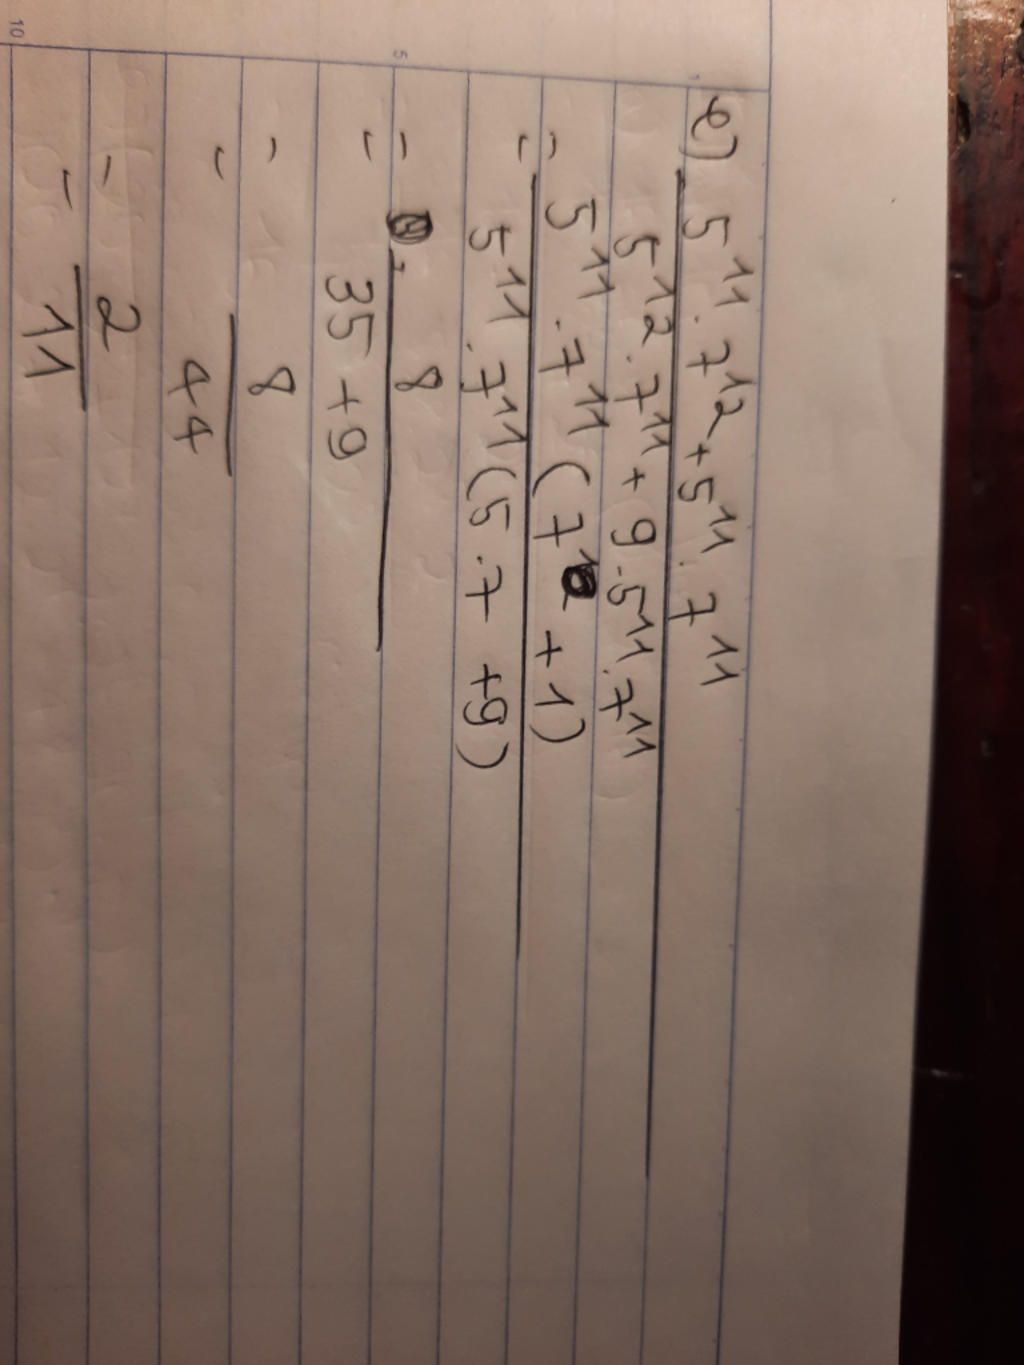 e) 5^11 . 7^12 + 5^11 . 7^11
5^12 . 7^11 + 9 . 5^11 . 7^11
= 5^11 . 7^11 ( 7^1 + 1 )
5^11 . 7^11 ( 5 . 7 + 9 )
= 8
35 + 9
= 8
44
= 2
11